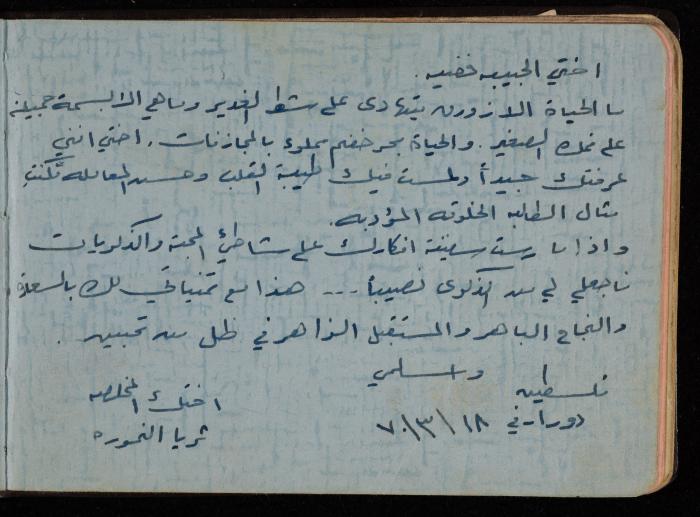 اختي الحبيبه فضيه
ما الحياة الا زورق يتهادى على شط الغدير وما هي الا بسمة جميلة
على فمك الصغير. والحياة بحر خضم مملوء بالمجازفات. اختي انني
عرفتك جيداً ولمست فيك طيبة القلب وحسن المعامله فكنت
مثال الطالبه الخلوقه المؤدبه.
واذا ما رست سفينة افكارك على شاطئ المحبة والذكريات
فاجعلي لي من الذكرى نصيباً ... هذا مع تمنياتي لك بالسعادة
والنجاح الباهر والمستقبل الزاهر في ظل من تحبين.
واسلمي
فلسطين
دورا في ١٨/٣/٧٠
اختك المخلصه
ثريا النموره